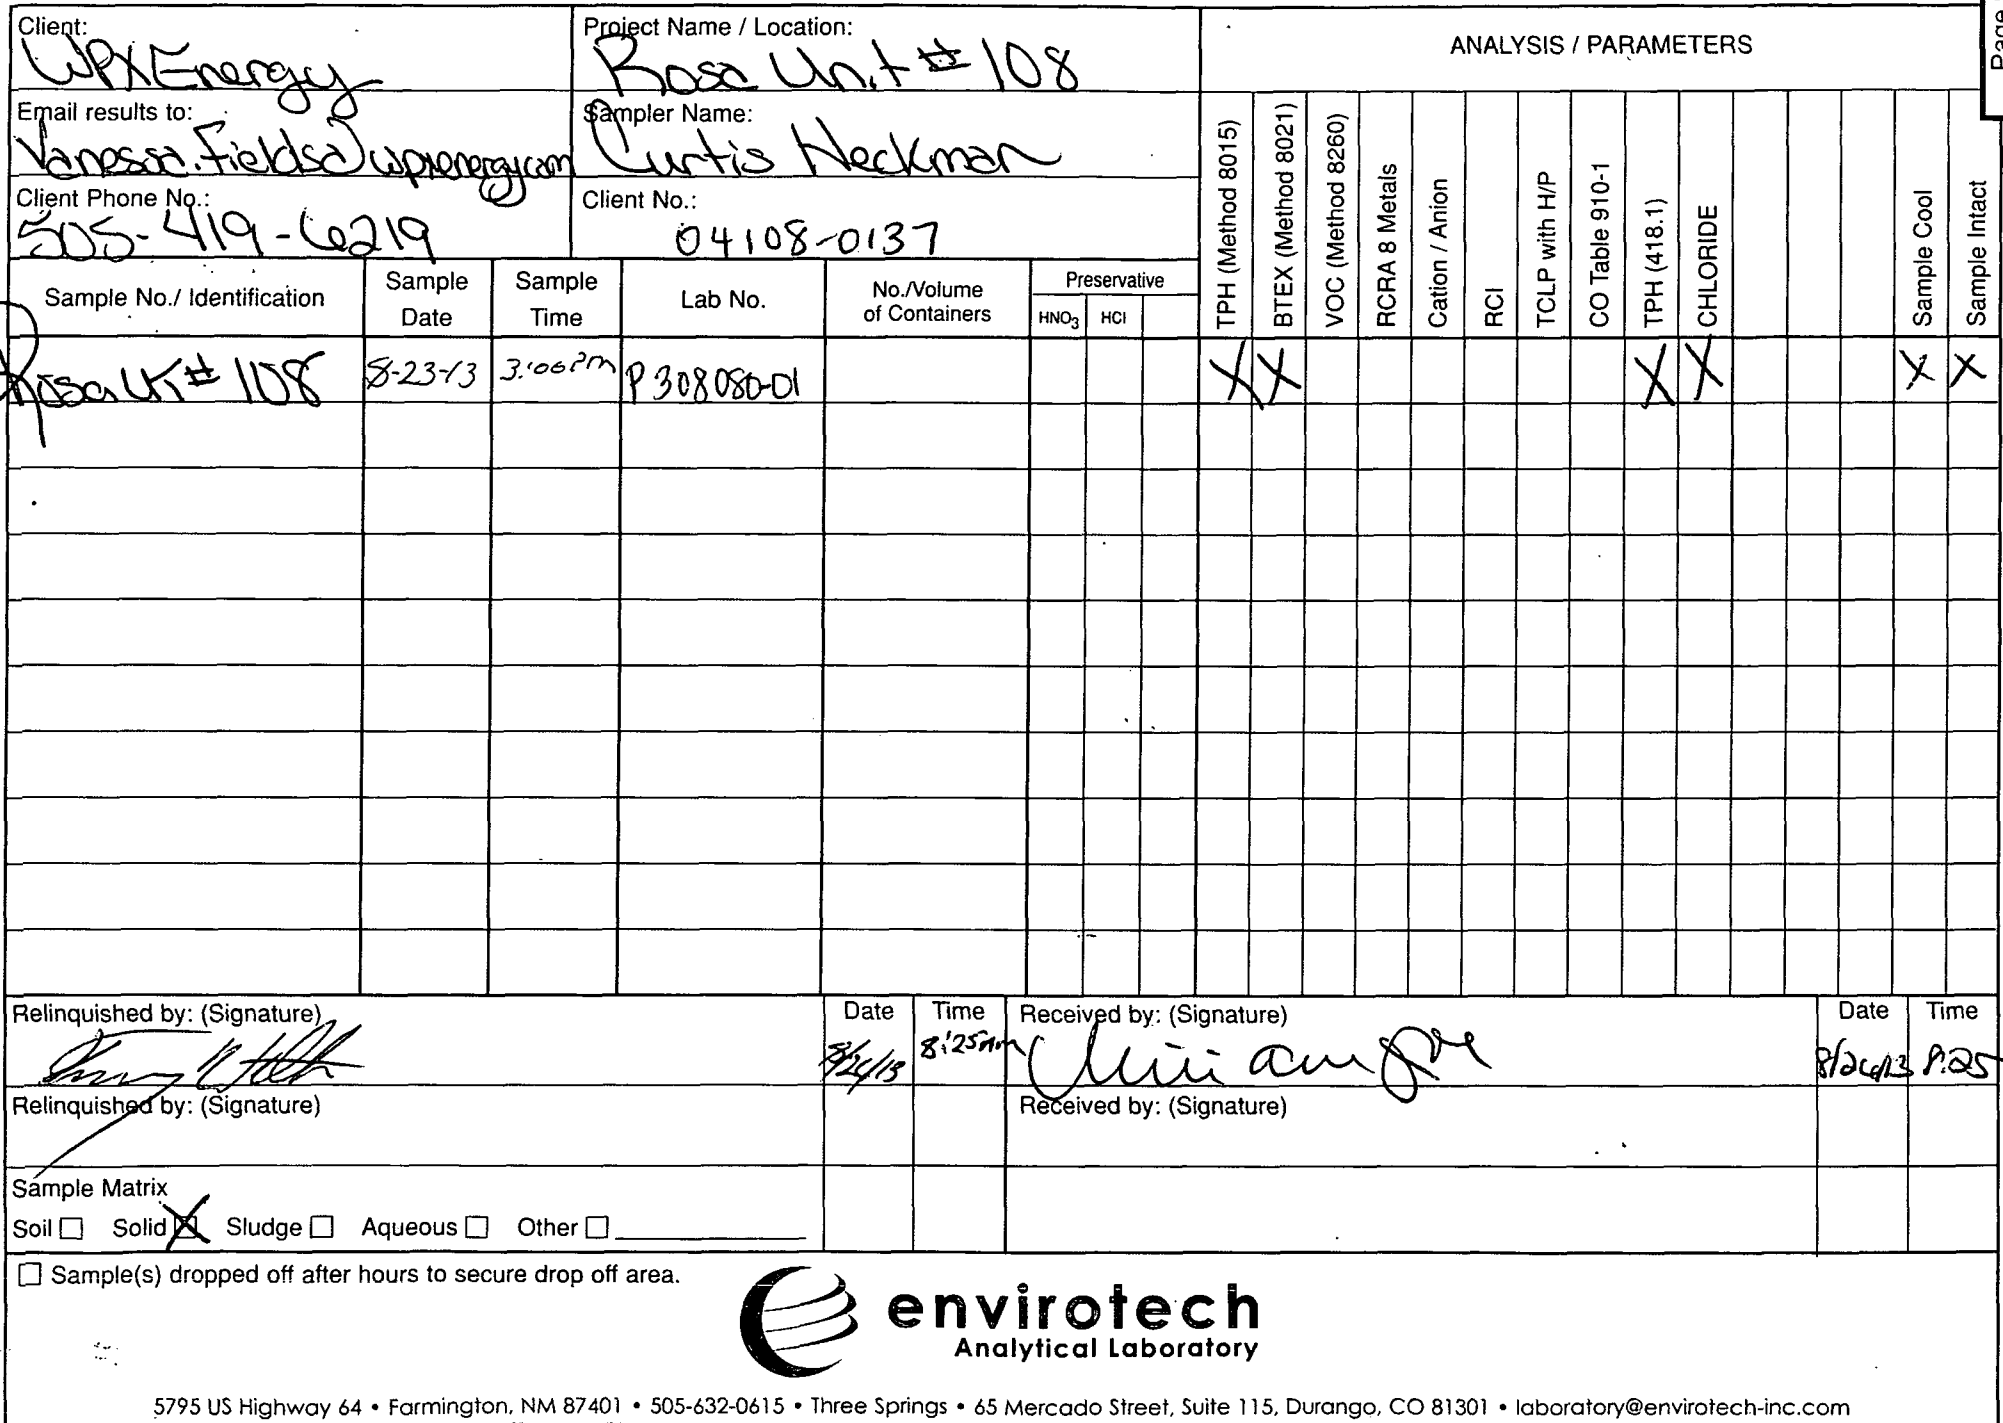 Client:
WPX Energy
Project Name / Location:
Rosa Unit # 108
ANALYSIS / PARAMETERS
Page
Email results to:
Vanessa.Fields@wpxenergy.com
Sampler Name:
Curtis Heckman
Client Phone No.:
505-419-6219
Client No.:
04108-0137
Sample No./ Identification
Sample Date
Sample Time
Lab No.
No./Volume of Containers
Preservative
HNO3
HCl
TPH (Method 8015)
BTEX (Method 8021)
VOC (Method 8260)
RCRA 8 Metals
Cation / Anion
RCI
TCLP with H/P
CO Table 910-1
TPH (418.1)
CHLORIDE
Sample Cool
Sample Intact
Rosa Ut # 108 8-23-13 3:00 PM P308080-01 X X X X X X
Relinquished by: (Signature)
Date
Time
Received by: (Signature)
Date
Time
8/26/13
8:25am
8/26/13
8:25
Relinquished by: (Signature)
Received by: (Signature)
Sample Matrix
Soil ☐ Solid ☒ Sludge ☐ Aqueous ☐ Other ☐
☐ Sample(s) dropped off after hours to secure drop off area.
envirotech
Analytical Laboratory
5795 US Highway 64 • Farmington, NM 87401 • 505-632-0615 • Three Springs • 65 Mercado Street, Suite 115, Durango, CO 81301 • laboratory@envirotech-inc.com